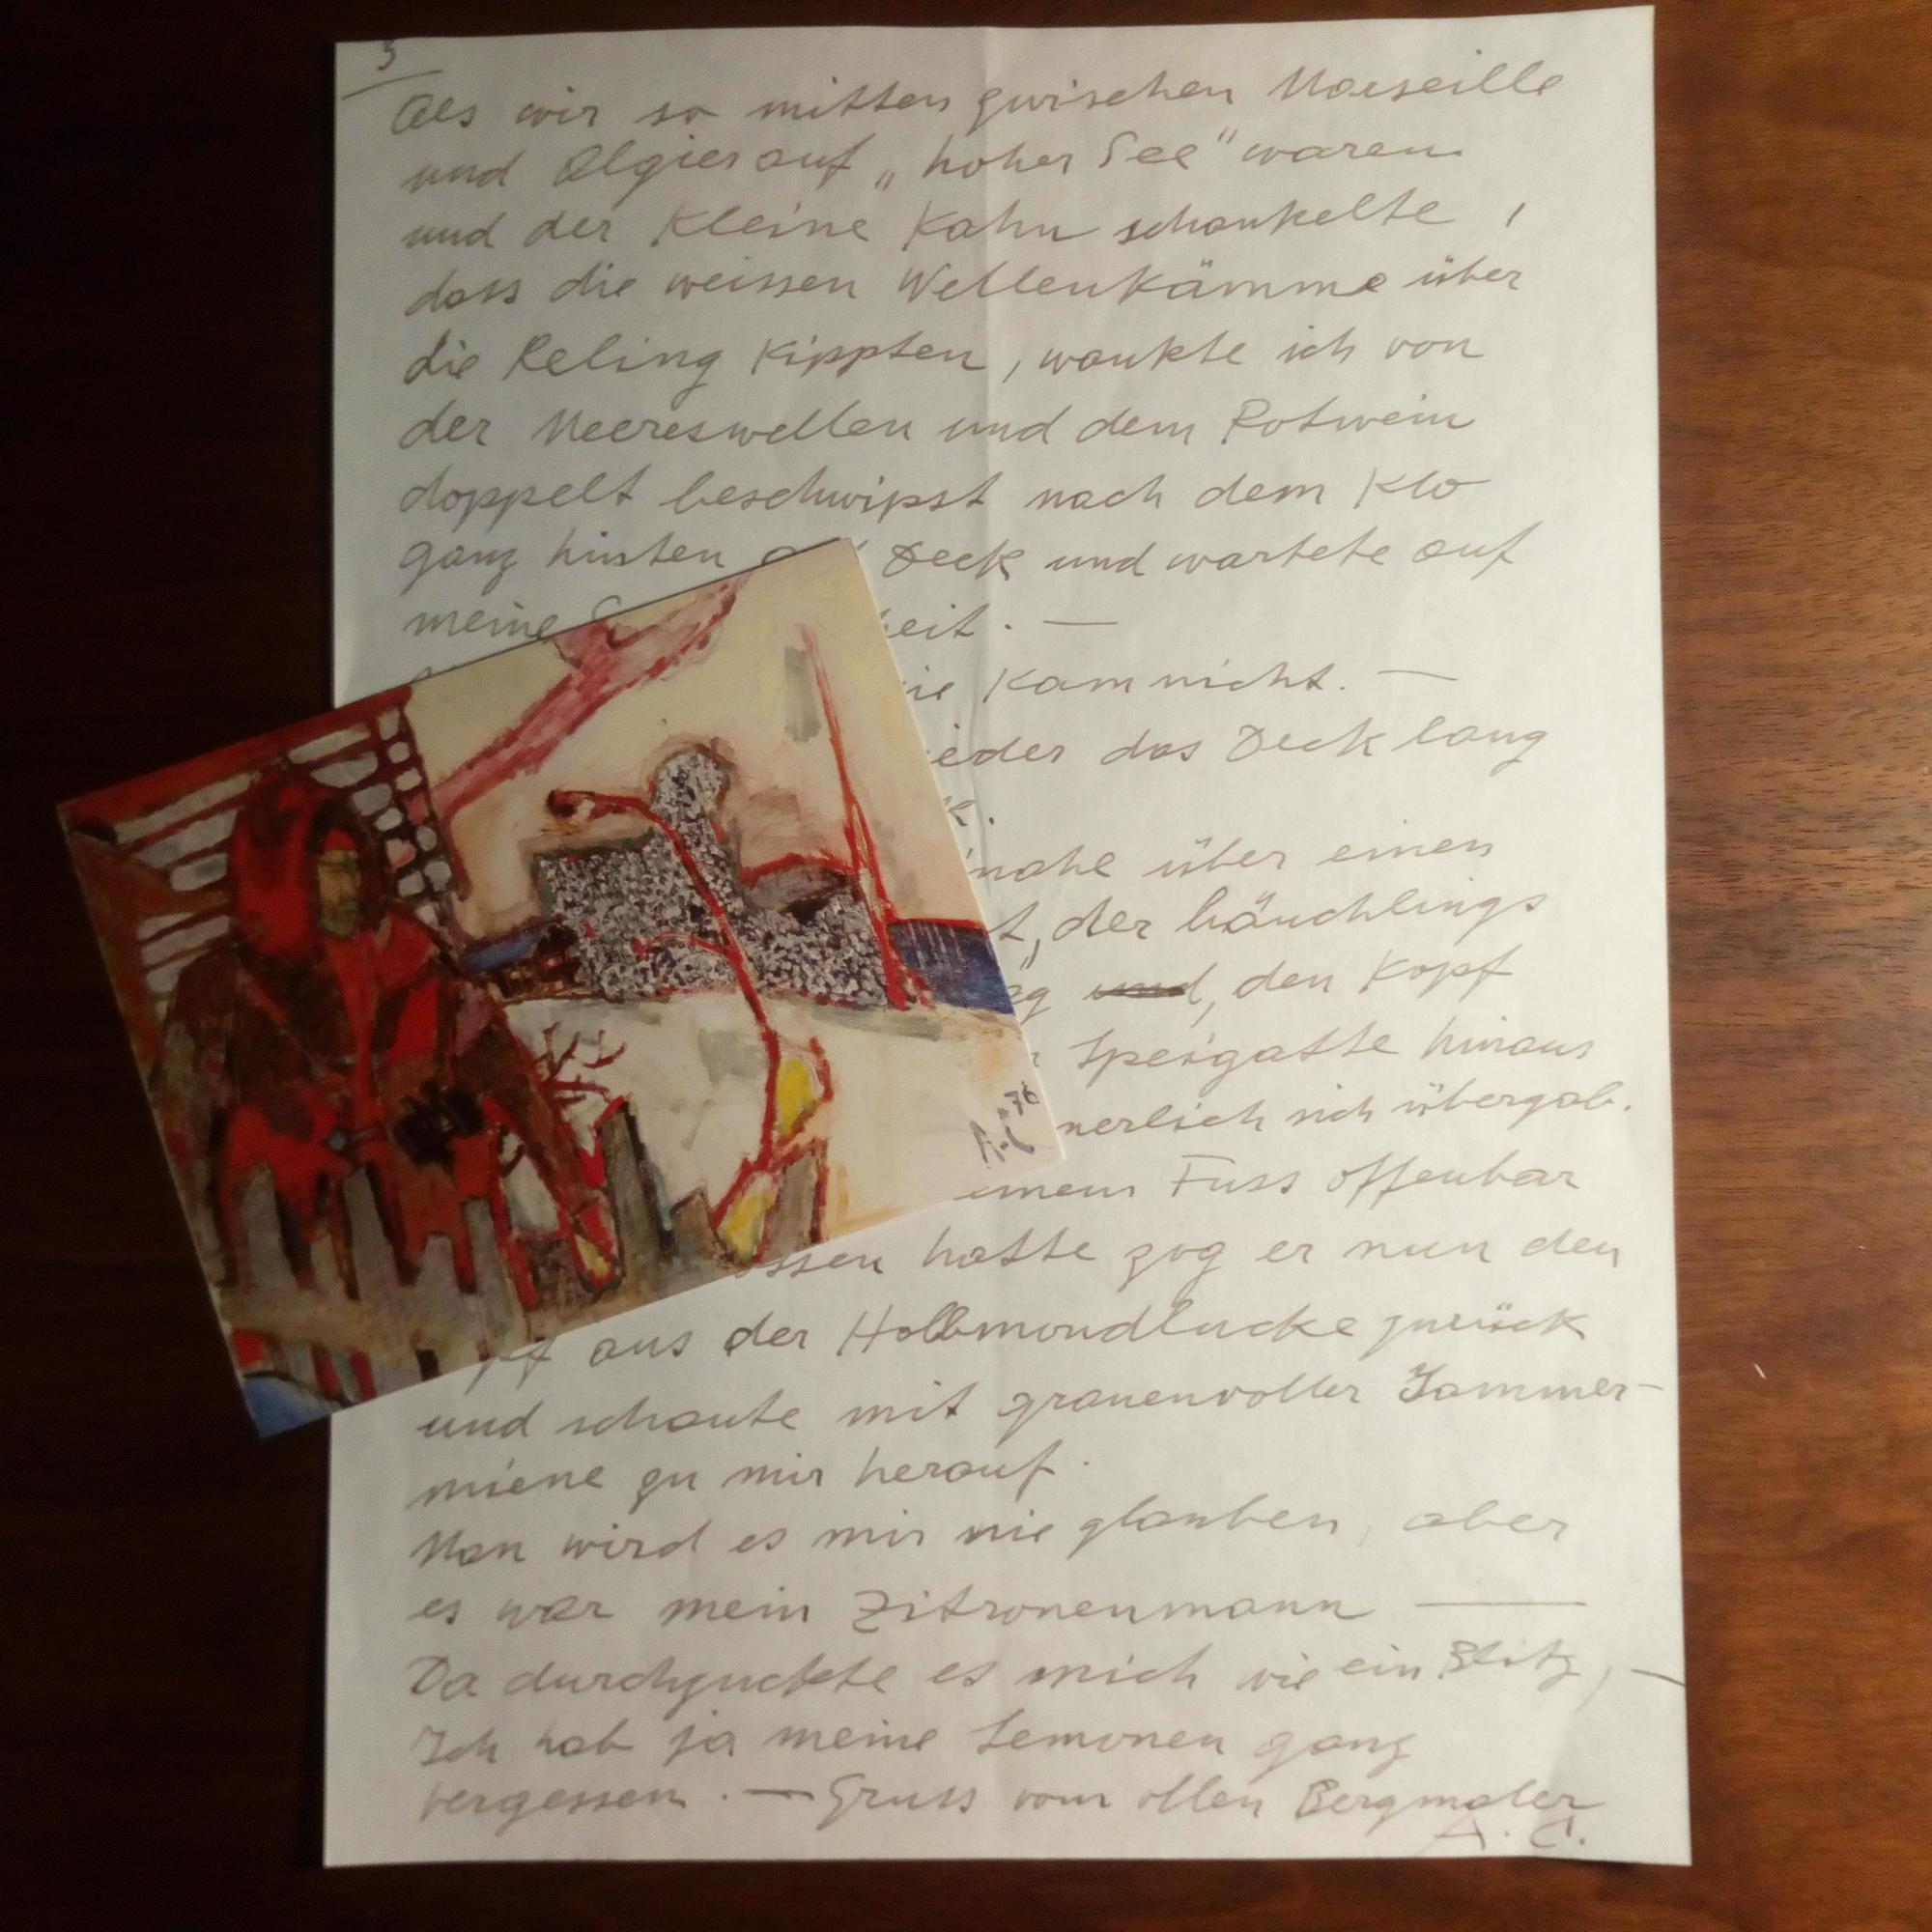 5
Als wir so mitten zwischen Marseille
und Algier auf „hoher See" waren
und der kleine Kahn schaukelte,
dass die weissen Wellenkämme über
die Reling kippten, wankte ich von
der Meereswellen und dem Rotwein
doppelt beschwipst nach dem Klo
ganz hinten Deck und wartete auf
meine heit. —
sie kam nicht. —
ieder das Deck lang
k.
inahe über einen
t, der bäuchlings
ag und, den Kopf
r Speigatte hinaus
nerlich sich übergab.
einem Fuss offenbar
ossen hatte zog er nun den
pf aus der Halbmondlucke zurück
und schaute mit grauenvoller Jammer-
miene zu mir herauf.
Man wird es mir nie glauben, aber
es war mein Zitronenmann —
Da durchzuckte es mich wie ein Blitz, —
Ich hab ja meine Lemonen ganz
vergessen. — Gruss vom ollen Bergmaler
76